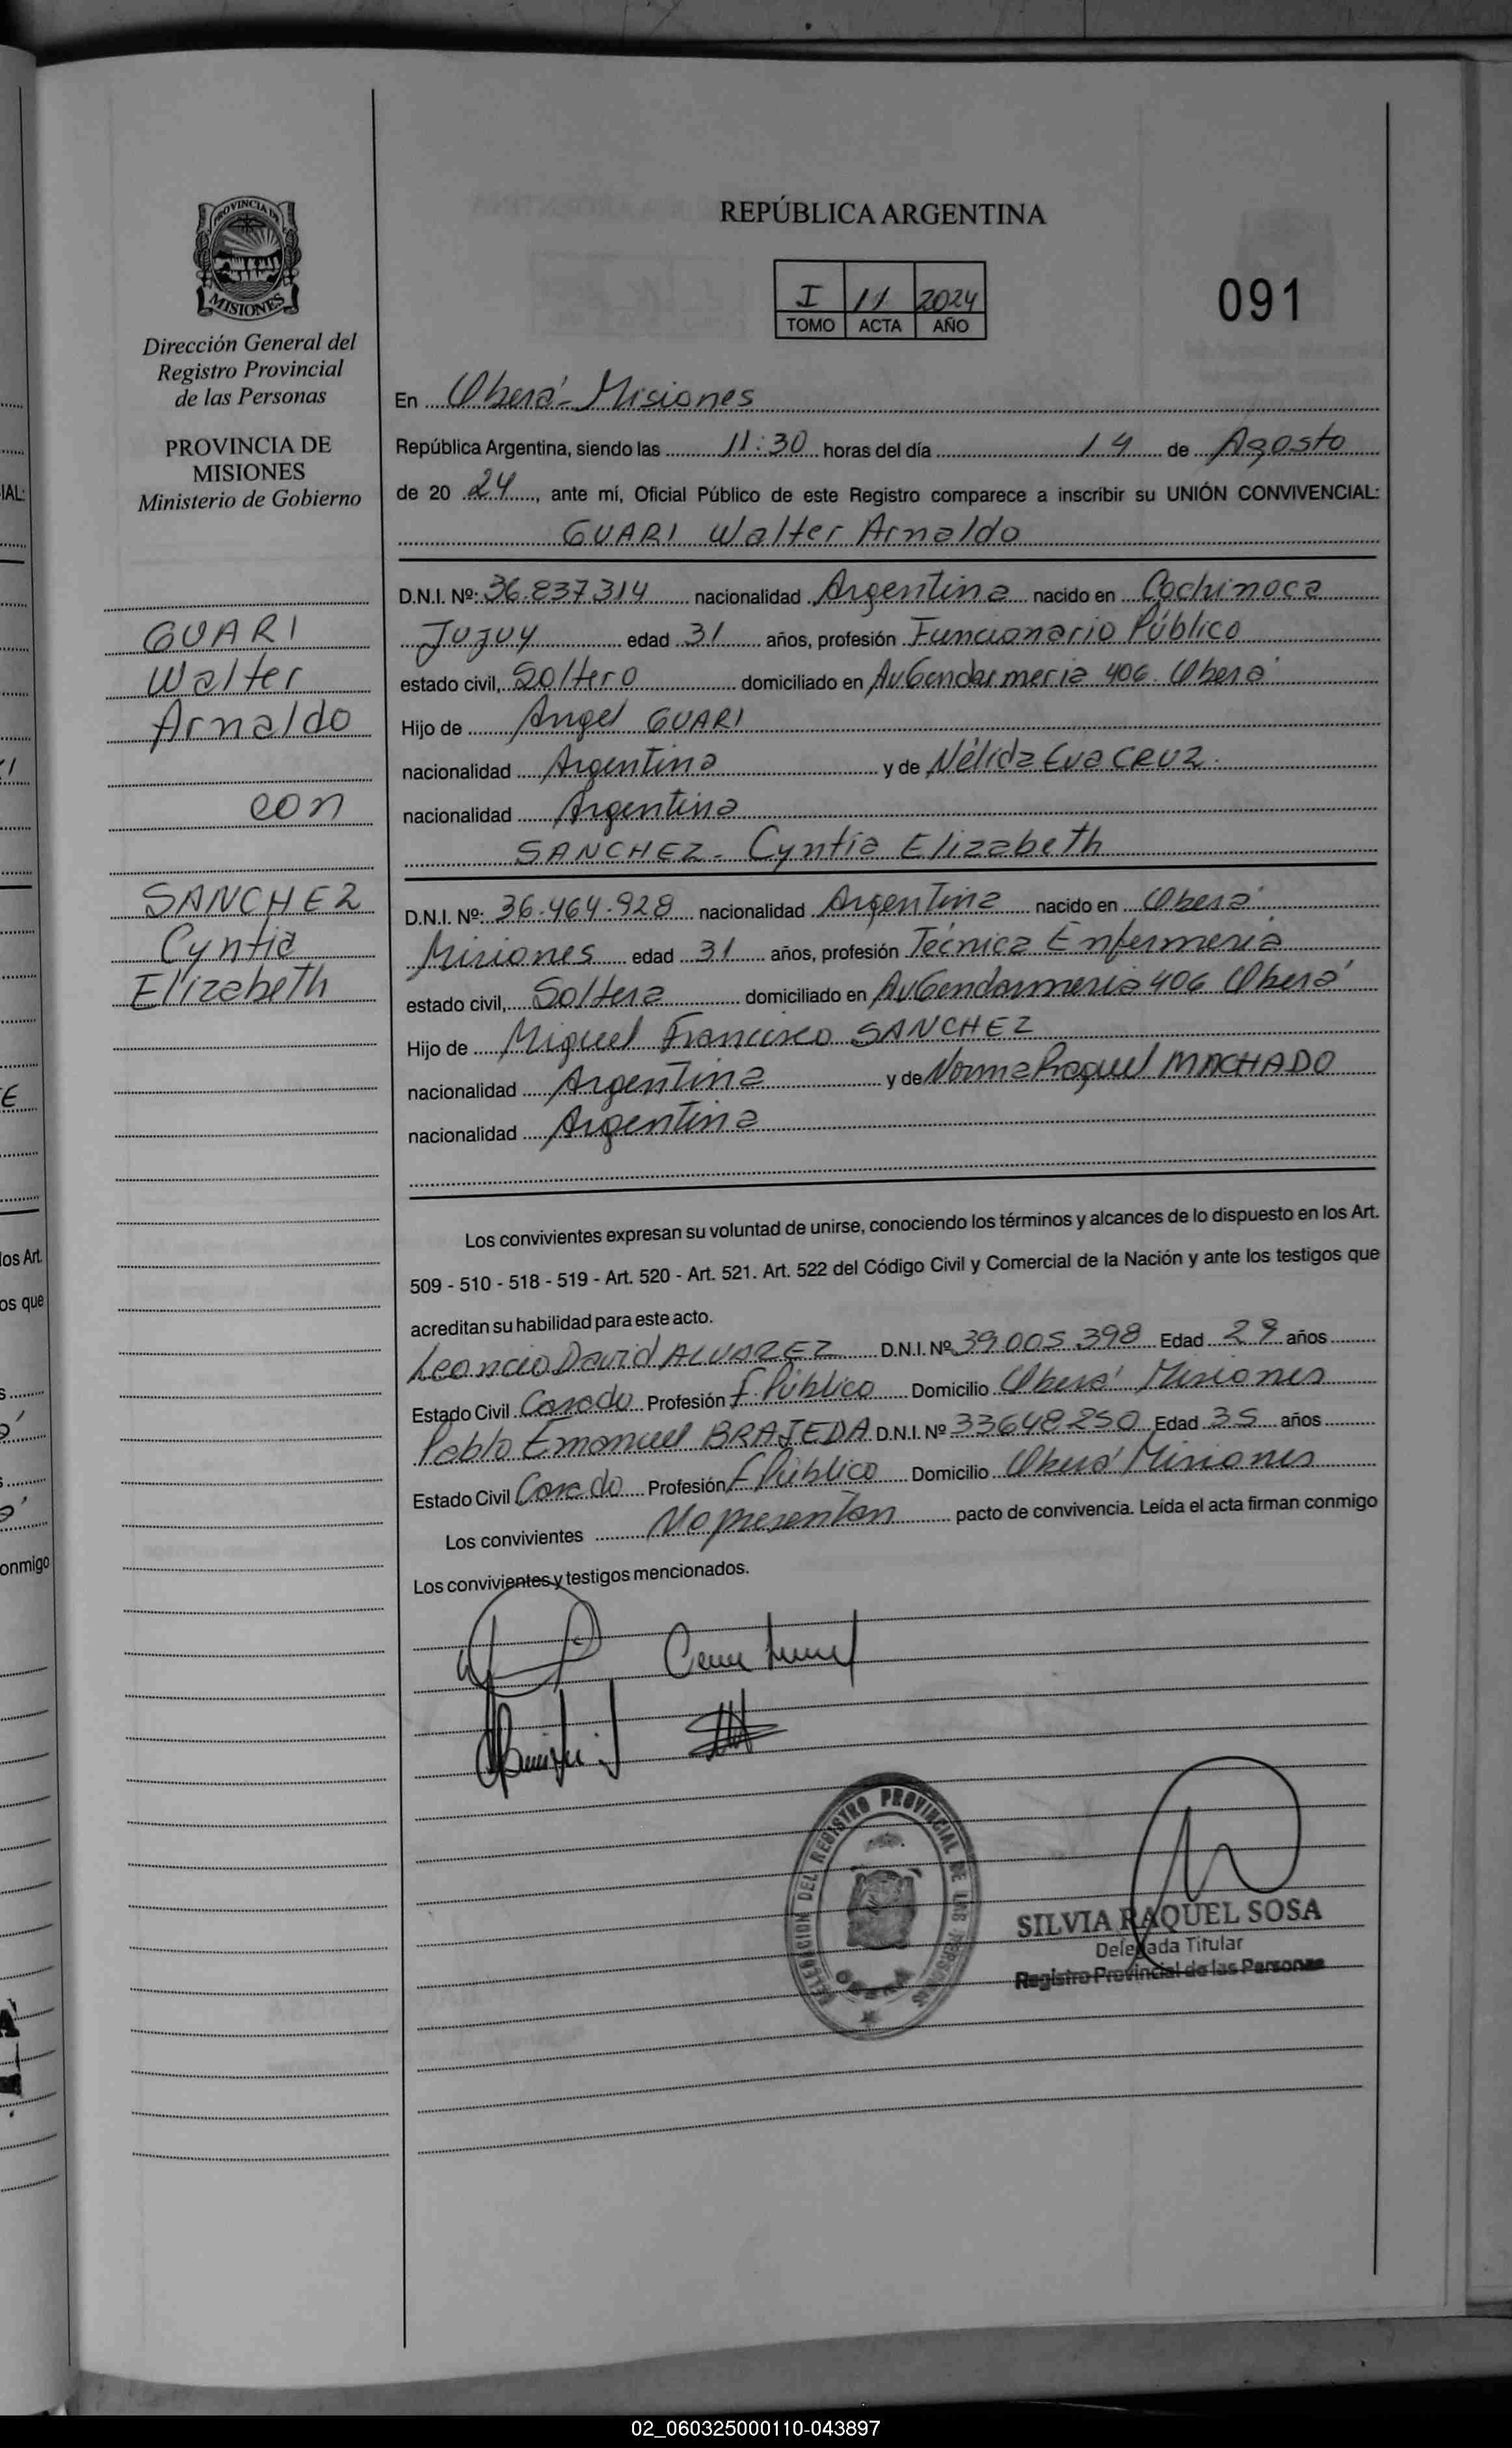 REPÚBLICA ARGENTINA
PROVINCIA DE
MISIONES
I 11 2024
TOMO ACTA AÑO
091
Dirección General del
Registro Provincial
de las Personas
PROVINCIA DE
MISIONES
Ministerio de Gobierno
En Oberá - Misiones
República Argentina, siendo las 11:30 horas del día 14 de Agosto
de 20 24, ante mí, Oficial Público de este Registro comparece a inscribir su UNIÓN CONVIVENCIAL:
GUARI Walter Arnaldo
D.N.I. Nº: 36.837.314 nacionalidad Argentina nacido en Cochinoca
Jujuy edad 31 años, profesión Funcionario Público
estado civil, Soltero domiciliado en Av Gendarmeria 406. Oberá
Hijo de Angel GUARI
nacionalidad Argentina y de Nélida Eva CRUZ.
nacionalidad Argentina
SANCHEZ - Cyntia Elizabeth
D.N.I. Nº: 36.464.928 nacionalidad Argentina nacido en Oberá
Misiones edad 31 años, profesión Técnica Enfermeria
estado civil, Soltera domiciliado en Av Gendarmeria 406 Oberá
Hijo de Miguel Francisco SANCHEZ
nacionalidad Argentina y de Norma Raquel MACHADO
nacionalidad Argentina
GUARI
Walter
Arnaldo
con
SANCHEZ
Cyntia
Elizabeth
Los convivientes expresan su voluntad de unirse, conociendo los términos y alcances de lo dispuesto en los Art.
509 - 510 - 518 - 519 - Art. 520 - Art. 521. Art. 522 del Código Civil y Comercial de la Nación y ante los testigos que
acreditan su habilidad para este acto.
Leoncio David ALVAREZ D.N.I. Nº 39.005.398 Edad 29 años
Estado Civil Casado Profesión F. Público Domicilio Oberá Misiones
Pablo Emanuel BRAJEDA D.N.I. Nº 33648250 Edad 35 años
Estado Civil Casado Profesión F Público Domicilio Oberá Misiones
Los convivientes No presentan pacto de convivencia. Leída el acta firman conmigo
Los convivientes y testigos mencionados.
DELEGACION DEL REGISTRO PROVINCIAL DE LAS PERSONAS
OBERA
SILVIA RAQUEL SOSA
Delegada Titular
Registro Provincial de las Personas
IAL:
los Art.
os que
onmigo
02_060325000110-043897